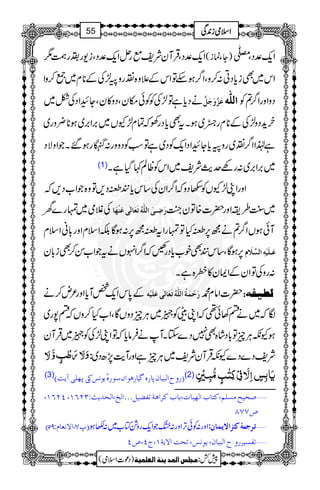 اسلامی زندگی 55
ایک عدد، مصلّٰی (جاءنماز) ایک عدد، قرآن شریف مع رحل ایک عدد، زیور بقدر ہمت مگر
اس میں بھی زیادتی نہ کرو، اگر ہوسکے تو اس کے علاوہ نقد روپیہ لڑکی کے نام میں جمع کروا
دو اور اگر تم کو اللّٰہ عَزَّ وَجَلَّ نے دیا ہے تو لڑکی کو کوئی مکان، دوکان، جائیداد کی شکل میں
خرید دو، لڑکی کے نام رجسٹری ہو۔ یہ بھی یاد رکھو کہ تمام لڑکیوں میں برابری ہونا ضروری
ہے لہٰذا اگر نقدی روپیہ یا جائیداد ایک کو دی ہے تو سب کو دو ورنہ گنہگار ہوگے۔ جو اولاد
میں برابری نہ رکھے حدیث شریف میں اس کو ظالم کہا گیا ہے۔ (۱)
اور اپنی لڑکیوں کو سکھاؤ کہ اگر ان کی ساس یا نند طعنہ دیں تو وہ جواب دیں کہ
میں سنت طریقہ اور حضرت خاتونِ جنت رَضِیَ اللّٰہُ تَعَالٰی عَنْہَا کی غلامی میں تمہارے گھر
آئی ہوں اگر تم نے مجھ پر طعنہ کیا تو تمہارا یہ طعنہ مجھ پر نہ ہوگا بلکہ اسلام اور بانی اسلام
عَلَیْہِ السَّلَام پر ہوگا، ساس نند بھی خوب یاد رکھیں کہ اگر انہوں نے یہ جواب سن کر بھی زبان
نہ روکی تو ان کے ایمان کا خطرہ ہے۔
لطیفہ: حضرت امام محمد رَحْمَۃُ اللّٰہِ تَعَالٰی عَلَیْہِ کے پاس ایک شخص آیا اور عرض کرنے
لگا کہ میں نے قسم کھائی تھی کہ اپنی بیٹی کو جہیز میں ہر چیز دوں گا، اب کیا کروں کہ قسم پوری
ہو کیونکہ ہر چیز تو بادشاہ بھی نہیں دے سکتا۔ آپ نے فرمایا کہ تو اپنی لڑکی کو جہیز میں قرآن
شریف دے دے کیونکہ قرآن شریف میں ہر چیز ہے اور آیت پڑھ دی: وَ لَا رَطْبٍ وَّ لَا
یَابِسٍ اِلَّا فِیْ کِتٰبٍ مُّبِیْنٍ (2) (روح البیان پارہ گیارھواں، سورۂ یونس کی پہلی آیت) (3)
۱ ......صحیح مسلم، کتاب الھبات، باب کراھۃ تفضیل...الخ، الحدیث: ١٦٢٣، ١٦٢٤،
ص٨٧٧
۲ ......ترجمۂ کنز الایمان: اور نہ کوئی تر اور نہ خشک جو ایک روشن کتاب میں لکھا نہ ہو (پ٧، الانعام: ٥٩)
۳ ......تفسیر روح البیان، یونس، تحت الایۃ ١، ج٤، ص٤
پیش کش: مجلس المدینۃ العلمیۃ (دعوتِ اسلامی)